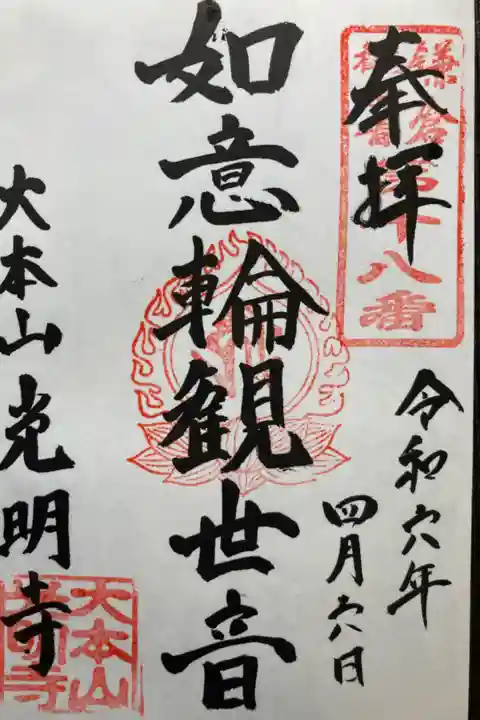 奉拝
鎌倉
第十八番
令和六年
四月六日
如意輪観世音
大本山光明寺
大本山
光明寺